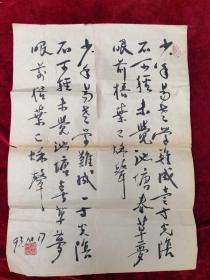 少年易老學難成壹寸光陰
不可輕未覺池塘春草夢
眼前梧葉已秋聲
少年易老學難成一寸光陰
不可輕未覺池塘春草夢
眼前梧葉已秋聲